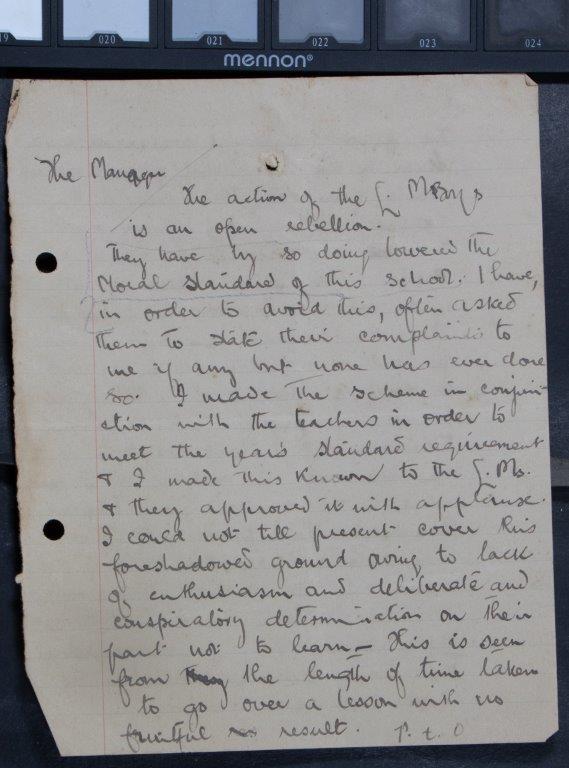 19 020 021 022 023 024
mennon®
The Manager
The action of the G. M Boys
is an open rebellion.
They have by so doing lowered the
Moral standard of this school. I have,
in order to avoid this, often asked
them to state their complaints to
me if any but none has ever done
so. I made the scheme in conjun-
ction with the teachers in order to
meet the year's standard requirement
& I made this known to the G. Ms.
& they approved it with applause.
I could not till present cover this
foreshadowed ground owing to lack
of enthusiasm and deliberate and
conspiratory determination on their
part not to learn – This is seen
from they the length of time taken
to go over a lesson with no
fruitful result. P. t. O